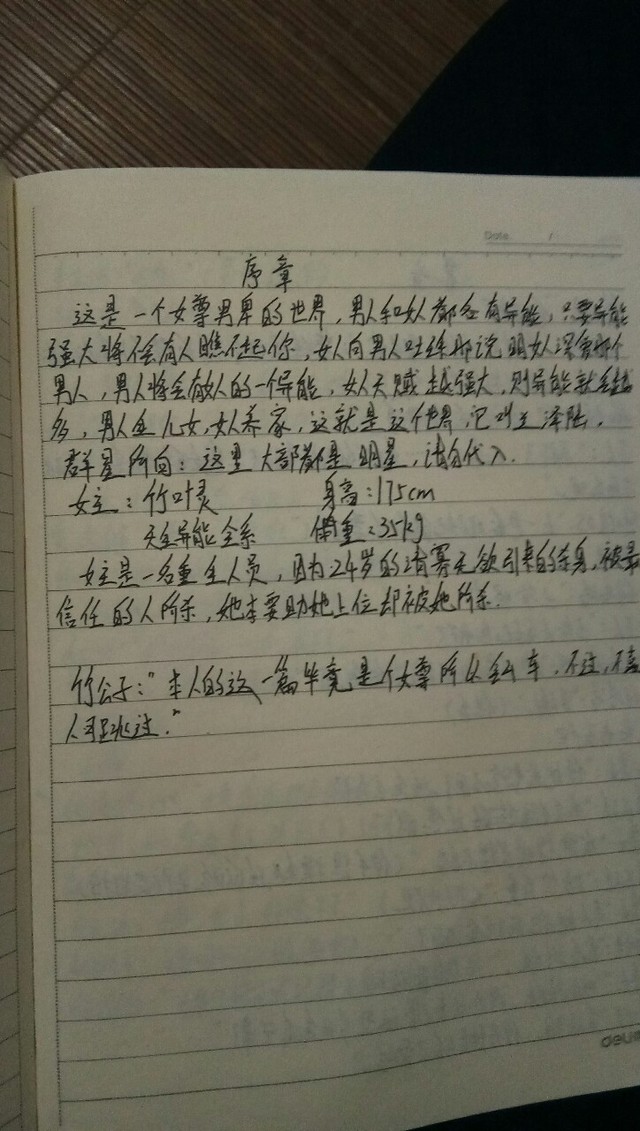 Date /
序章
这是一个女尊男卑的世界，男人和女人都会有异能，只要异能
强大将不会有人瞧不起你，女人向男人吐丝那说明女人深爱那个
男人，男人将会有女人的一个异能，女人天赋越强大，则异能就会越
多，男人生儿女，女人养家，这就是这个世界，它叫兰泽陆，
群星所向：这里大部都是明星，请自代入．
女主：竹叶灵 身高：175cm
异能全系 体重：35kg
女主是一名重生人员，因为24岁的清寡无欲引来的杀身，被最
信任的人所杀，她本要助她上位却被她所杀．
竹公子：“本人的这一篇毕竟是个女尊所以 车，不过，不喜
人可跳过．”
deli